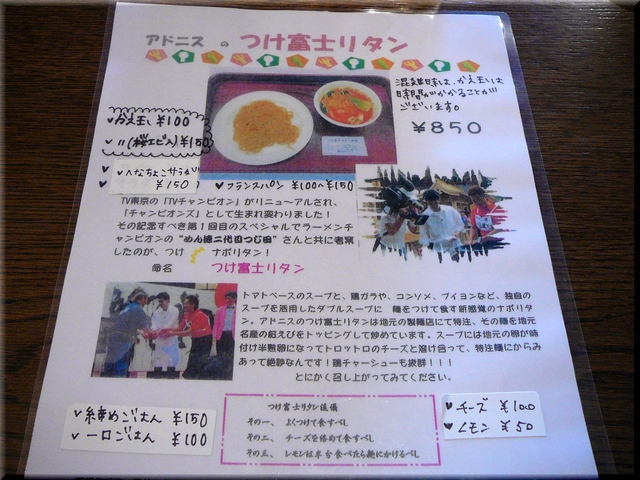 アドニス の つけ富士リタン
混雑時は、かえ玉は
時間がかかることが
ございます。
¥850
かえ玉 ¥100
〃(桜エビ入) ¥150
へなちょこサラダ
¥150
フランスパン ¥100〜¥150
TV東京の「TVチャンピオン」がリニューアルされ、
「チャンピオンズ」として生まれ変わりました!
その記念すべき第1回目のスペシャルでラーメンチ
ャンピオンの "めん徳二代目つじ田" さんと共に考案
したのが、つけ ナポリタン!
命名 つけ富士リタン
トマトベースのスープと、鶏ガラや、コンソメ、ブイヨンなど、独自の
スープを活用したダブルスープに 麺をつけて食す新感覚のナポリタ
ン。アドニスのつけ富士リタンは地元の製麺店にて特注、その麺を地元
名産の桜えびをトッピングして炒めています。スープには地元の卵が味
付け半熟卵になってトロットロのチーズと溶け合って、特注麺にからみ
あって絶妙なんです!鶏チャーシューも抜群!!!
とにかく召し上がってみてください。
締めごはん ¥150
一口ごはん ¥100
つけ富士リタン流儀
その一、 よくつけて食すべし
その二、 チーズを絡めて食すべし
その三、 レモンは半分食べたら麺にかけるべし
チーズ ¥100
レモン ¥50